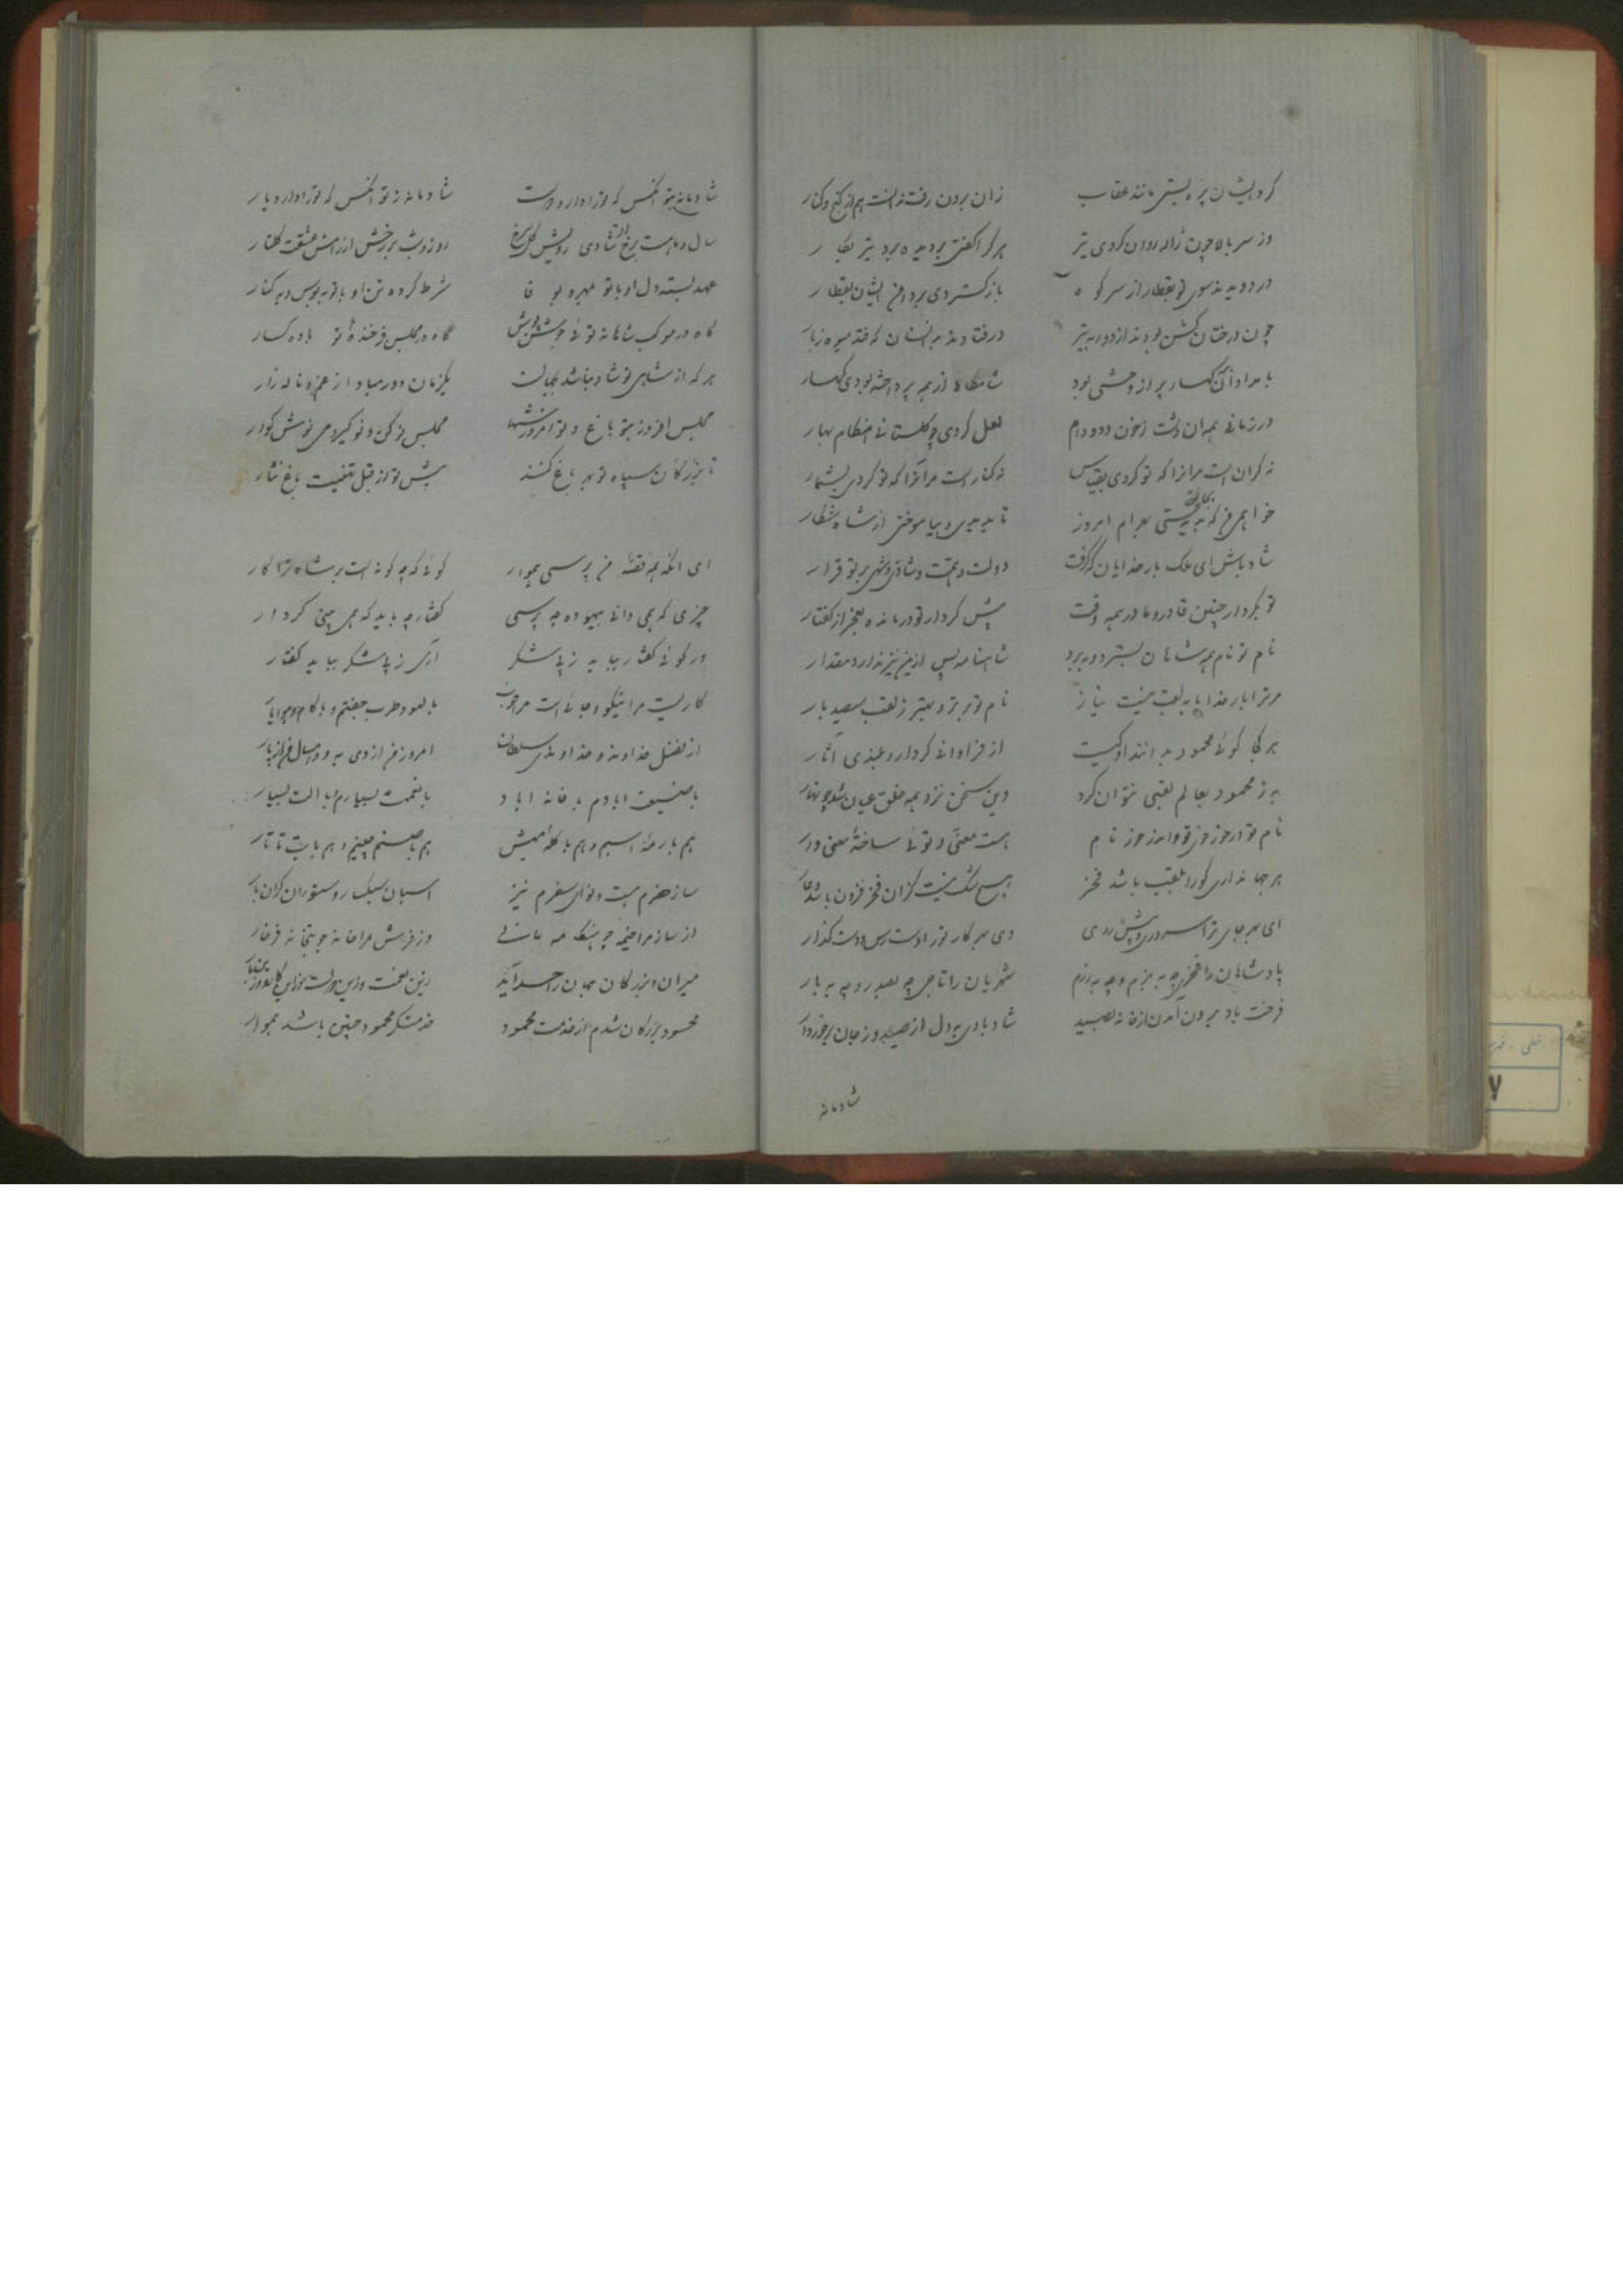 کرد ایشان پره بستی مانند عقاب زان برون رفت ندانست هم از کنج و کنار
وز سر بالا چون ژاله روان کردی تیر هر کرا گفتی بر دیده برد تیر بکار
در دویدند سوی تو بقطار از سر کوه باز گستردی بر دامن ایشان بقطار
چون درختان گشن بودند از دور به تیر در فتادند بدانسان که فتد میوه ز بار
بامدادان کهسار پر از وحشی بود شامگاه از همه پرداخته بودی کهسار
در زمانی همه آن دشت ز خون دد و دام لعل کردی چو گلستانی هنگام بهار
نه کران است مرانرا که تو کردی بقیاس نه کنار است مر آنرا که تو کردی بشمار
خواهمی من که بجایستی بهرام امروز تا بدیدی و بیاموختی از شاه شکار
شاد باش ای ملک بار خدایان که گرفت دولت و همت و شادی و شهی بر تو قرار
تو بکردار چنین قادر و ما در همه وقت پیش کردار تو درمانده بعجز از گفتار
نام تو نام همه شاهان بسترد و ببرد شاهنامه پس ازین نیز ندارد مقدار
مر ترا بار خدایا بلقب نیست نیاز نام تو برتر و بهتر ز لقب سیصد بار
هر کجا گوئی محمود بدانند که کیست از فراوانی کردار و بلندی آثار
به ز محمود بعالم لقبی نتوان کرد وین سخن نزد همه خلق عیان شد چو نهار
نام تو در خور خوی تو و اندر خور نام هست معنی و توئی ساخته معنی وار
هر جهانداری کورا بلقب باشد فخر هیچ شک نیست کزان فخر فزون باشد عار
ای بهر جای ترا سروری و پیش روی وی بهر کار ترا دسترس و دست گذار
پادشاهان را فخری چه ببزم و چه برزم شهریان را تاجی چه بصدر و چه ببار
فرخت باد برون آمدن از خانه بصید شاد بادی بدل از صید و ز جان برخوردار
شادمانه
شادمانه بتو آنکس که تو را دارد دوست شادمانه ز تو آنکس که تو را دارد یار
عهد بسته دل او با تو بمهر و بوفا شرط کرده تن او با تو ببوس و بکنار
گاه در مجلس فرخنده تو باده گسار
هر که از شاهی تو شاد نباشد بجهان یکزمان دور مباد از غم و ناله زار
مجلس نو کن و نو گیر و می نوش گوار
تا بزرگان سپاه تو بهر باغ کنند پیش تو از قبل تهنیت باغ نثار
ای آنکه همی قصه من پرسی هموار گوئی که چه گونه است بر شاه ترا کار
چیزی که همی دانی بیهوده چه پرسی گفتار چه باید که همی بینی کردار
ور گوئی گفتار بباید ز پی شکر آری ز پی شکر بباید گفتار
کاریست مرا نیکو و حالیست مرا خوب با لهو و طرب جفتم و با کام و هوا یار
از فضل خداوند و خداوندی سلطان امروز من از دی به و امسال من از پار
با ضیعت آبادم و با خانه آباد با نعمت بسیارم و با آلت بسیار
هم با رمه اسبم و هم با گله میش هم با صنم چینم و هم با بت تاتار
ساز حضرم هست و نوای سفرم نیز اسبان سبک رو و ستوران گران بار
از ساز مرا خیمه چو بتکده مانی وز فرش مرا خانه چو بتخانه فرخار
میران و بزرگان جهان را حسد آید زین نعمت و زین دولت و زین
محسود بزرگان شدم از خدمت محمود خدمتگر محمود چنین باشد هموار